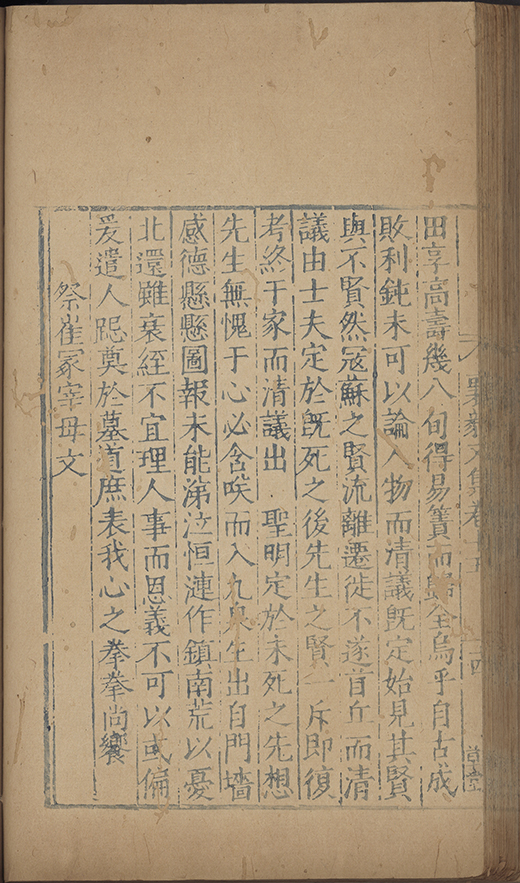 田享高壽幾八旬得易簀而歸全烏乎自古成
敗利鈍未可以論人物而清議既定始見其賢
與不賢然寇蘇之賢流離遷徙不遂首丘而清
議由士夫定於既死之後先生之賢一斥即復
考終于家而清議出 聖明定於未死之先想
先生無愧于心必含咲而入九泉生出自門墻
感德懸懸圖報未能涕泣恒漣作鎮南荒以憂
北還雖衰絰不宜理人事而恩義不可以或偏
爰遣人跽奠於墓道庶表我心之拳拳尚饗
祭崔冢宰母文